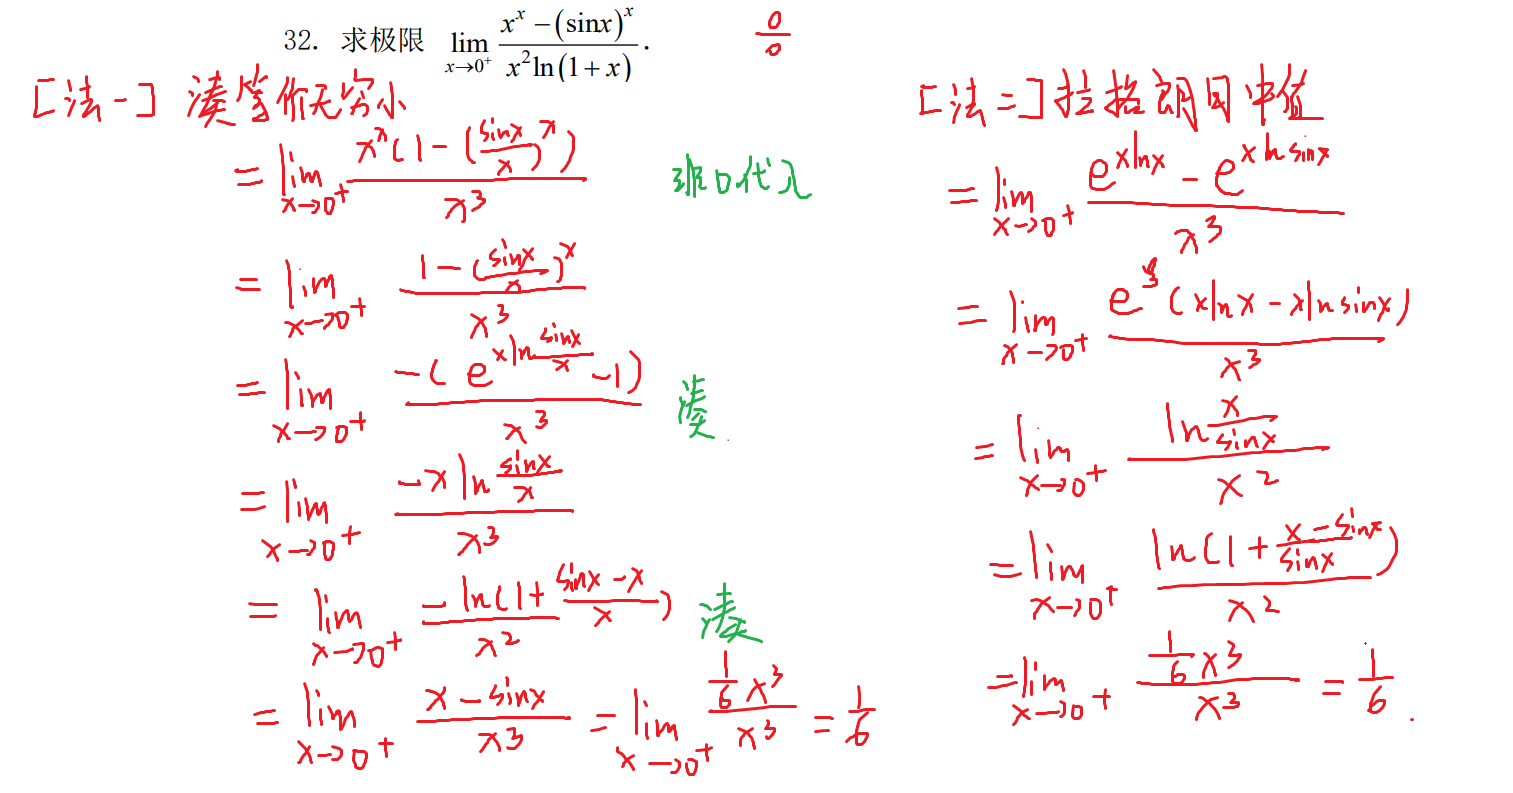 32. 求极限 lim x→0⁺ (xˣ − (sinx)ˣ) / (x²ln(1+x)) .
0/0
[法一] 凑等价无穷小
= lim x→0⁺ xˣ(1 − (sinx/x)ˣ) / x³
非0代入
= lim x→0⁺ (1 − (sinx/x)ˣ) / x³
= lim x→0⁺ −(e^(xln(sinx/x)) − 1) / x³
凑
= lim x→0⁺ −x ln(sinx/x) / x³
= lim x→0⁺ −ln(1 + (sinx−x)/x) / x²
凑
= lim x→0⁺ (x − sinx) / x³ = lim x→0⁺ (1/6 x³) / x³ = 1/6
[法二] 拉格朗日中值
= lim x→0⁺ (e^(xlnx) − e^(xlnsinx)) / x³
= lim x→0⁺ e^ξ (xlnx − xlnsinx) / x³
= lim x→0⁺ ln(x/sinx) / x²
= lim x→0⁺ ln(1 + (x−sinx)/sinx) / x²
= lim x→0⁺ (1/6 x³) / x³ = 1/6 .